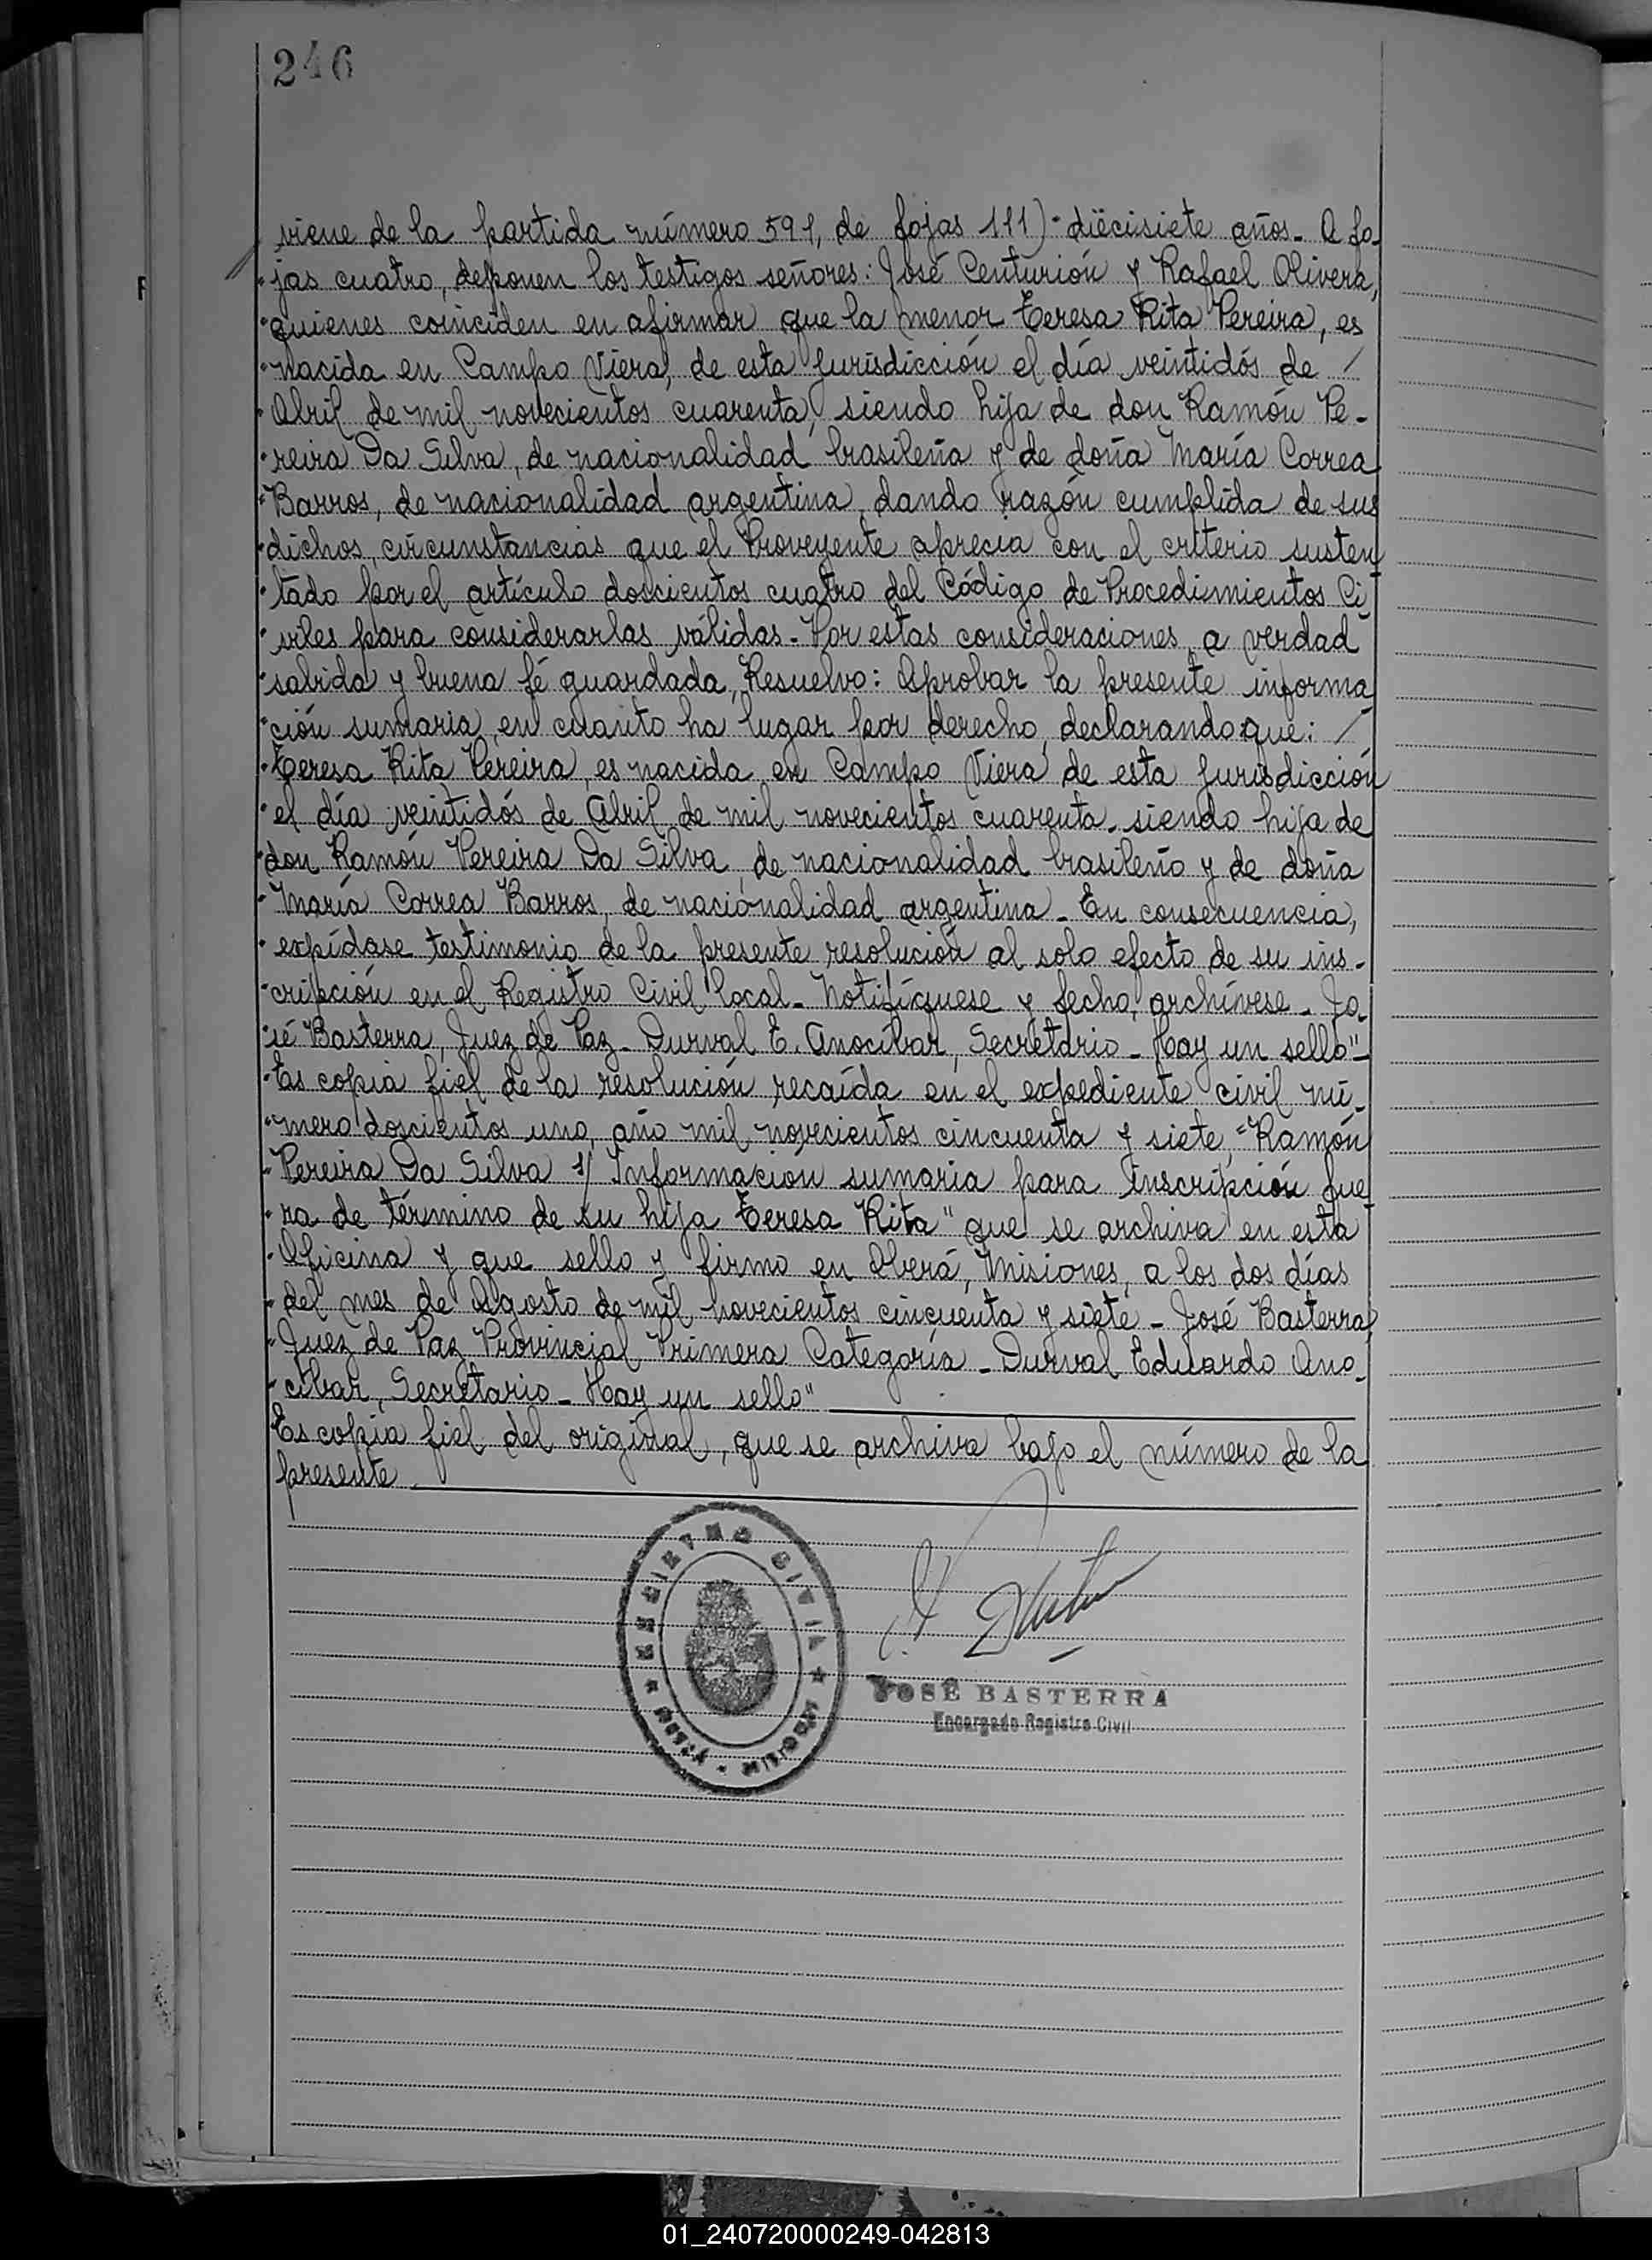 246
viene de la partida número 591, de fojas 111)-diecisiete años.- A fo-
"jas cuatro, deponen los testigos señores: José Centurión y Rafael Olivera,
"quienes coinciden en afirmar que la menor Teresa Rita Pereira, es
"nacida en Campo Viera, de esta jurisdicción el día veintidós de /
"Abril de mil novecientos cuarenta, siendo hija de don Ramón Pe-
"reira Da Silva, de nacionalidad brasileña y de doña María Correa
"Barros, de nacionalidad argentina, dando razón cumplida de sus
"dichos, circunstancias que el Proveyente aprecia con el criterio susten
"tado por el artículo doscientos cuatro del Código de Procedimientos Ci
"viles para considerarlas válidas.- Por estas consideraciones, a verdad
"sabida y buena fé guardada, Resuelvo: Aprobar la presente informa
"ción sumaria, en cuanto ha lugar por derecho, declarando que: /
"Teresa Rita Pereira, es nacida en Campo Viera de esta jurisdicción
"el día veintidós de Abril de mil novecientos cuarenta, siendo hija de
"don Ramón Pereira Da Silva, de nacionalidad brasileño y de doña
"María Correa Barros, de nacionalidad argentina.- En consecuencia,
"expídase testimonio de la presente resolución al solo efecto de su ins-
"cripción en el Registro Civil local.- Notifíquese y fecho, archívese.- Jo-
"sé Basterra, Juez de Paz.- Durval E. Anocíbar, Secretario.- Hay un sello"-
"Es copia fiel de la resolución recaída en el expediente civil nú-
"mero doscientos uno, año mil novecientos cincuenta y siete, "Ramón
"Pereira Da Silva s/ Información sumaria para inscripción fue
"ra de término de su hija Teresa Rita" que se archiva en esta
"Oficina y que sello y firmo en Oberá, Misiones, a los dos días
"del mes de Agosto de mil novecientos cincuenta y siete.- José Basterra,
"Juez de Paz Provincial Primera Categoría.- Durval Eduardo Ano-
"cíbar, Secretario.- Hay un sello"
Es copia fiel del original, que se archiva bajo el número de la
presente.
JOSÉ BASTERRA
Encargado Registro Civil
MISIONES
01_240720000249-042813